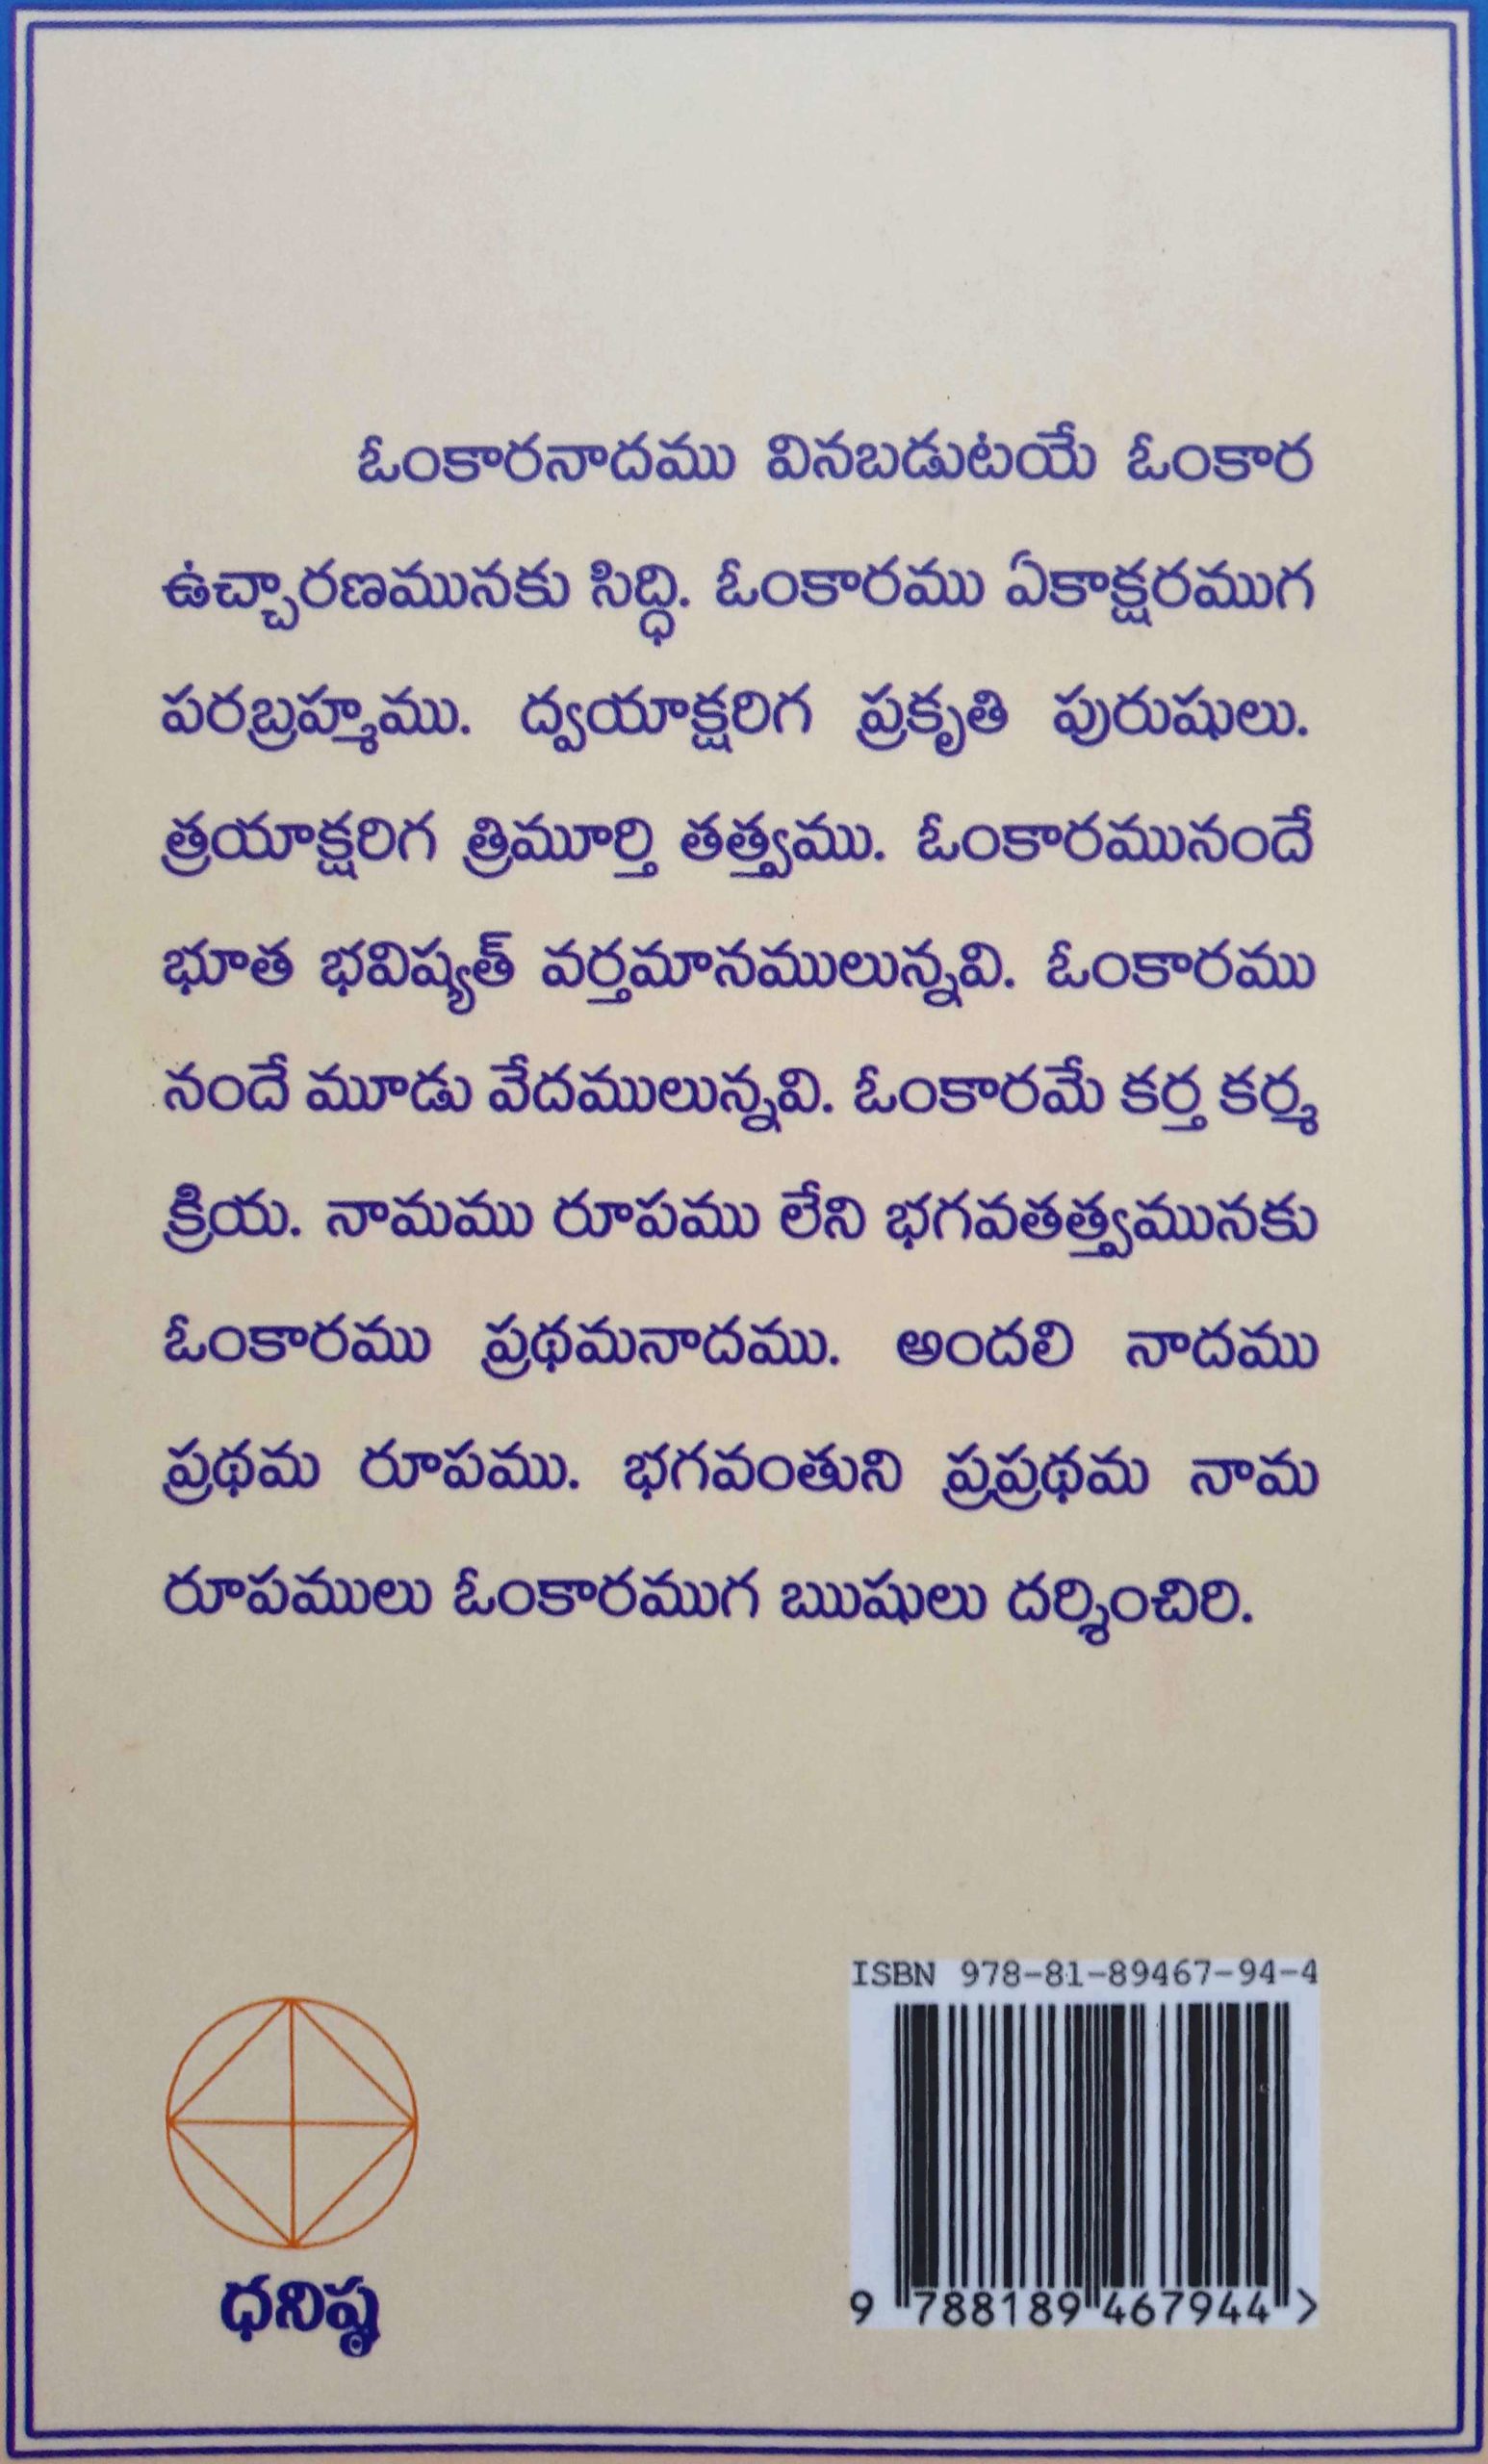 ఓంకారనాదము వినబడుటయే ఓంకార
ఉచ్చారణమునకు సిద్ధి. ఓంకారము ఏకాక్షరముగ
పరబ్రహ్మము. ద్వయాక్షరిగ ప్రకృతి పురుషులు.
త్రయాక్షరిగ త్రిమూర్తి తత్త్వము. ఓంకారమునందే
భూత భవిష్యత్ వర్తమానములున్నవి. ఓంకారము
నందే మూడు వేదములున్నవి. ఓంకారమే కర్త కర్మ
క్రియ. నామము రూపము లేని భగవతత్త్వమునకు
ఓంకారము ప్రథమనాదము. అందలి నాదము
ప్రథమ రూపము. భగవంతుని ప్రప్రథమ నామ
రూపములు ఓంకారముగ ఋషులు దర్శించిరి.
ధనిష్ఠ
ISBN 978-81-89467-94-4
9 788189 467944 >